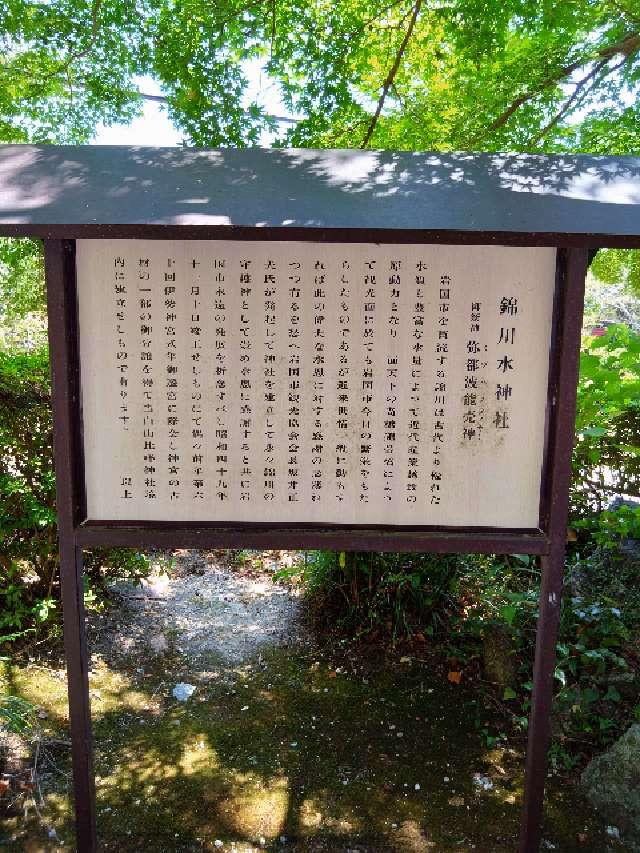 錦川水神社
御祭神 弥都波能売神
岩国市を貫流する錦川は古代より優れた
水質と豊富な水量によって近代産業誘致の
原動力となり一面天下の奇橋錦帯橋によっ
て観光面に於ても岩国市今日の繁栄をもた
らしたものであるが近来世情一般に動もす
れば此の偉大な水恩に対する感謝の念薄れ
つつ有るを愁へ岩国市観光協会会長
夫氏が発起して神社を建立して永く錦川の
守護神として崇め水恩に感謝すると共に岩
国市永遠の発展を祈念すべく昭和四十九年
十一月十日竣工せしものにて偶々前年第六
十回伊勢神宮式年御遷宮に際会し神宮の古
材の一部の御分譲を得て当白山比咩神社境
内に建立せしもので有ります。
以上